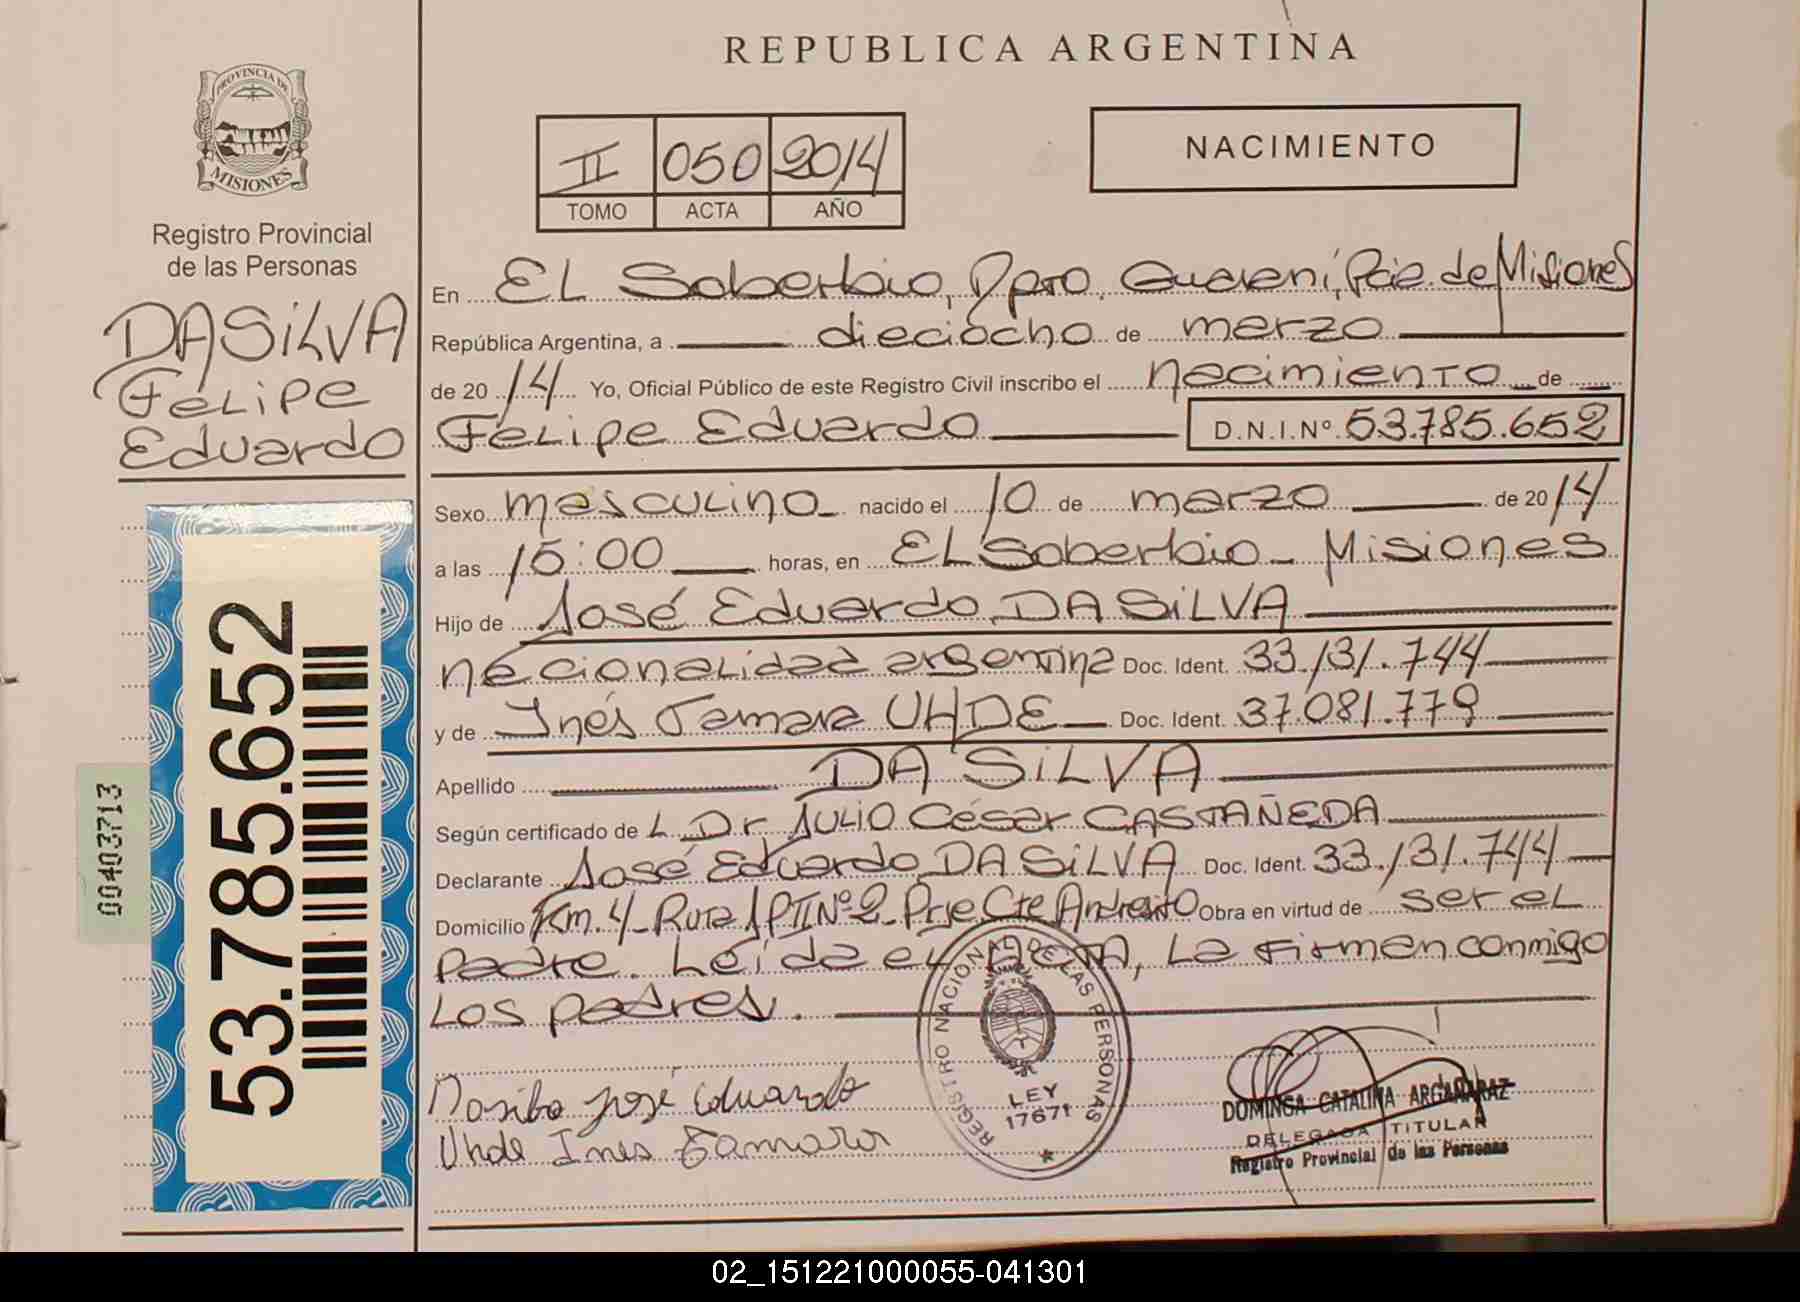 REPUBLICA ARGENTINA
PROVINCIA DE
MISIONES
Registro Provincial
de las Personas
DA SiLVA
FELIPE
Eduardo
53.785.652
00403713
II 050 2014
TOMO ACTA AÑO
NACIMIENTO
En EL Soberbio, Dpto. Guaraní, Pcia. de Misiones
República Argentina, a dieciocho de marzo
de 20 14 Yo, Oficial Público de este Registro Civil inscribo el nacimiento de
FELIPE Eduardo D.N.I.Nº 53.785.652
Sexo masculino nacido el 10 de marzo de 20 14
a las 15:00 horas, en EL Soberbio - Misiones
Hijo de José Eduardo DA SiLVA
nacionalidad argentina Doc. Ident. 33.131.744
y de Inés Tamara UHDE Doc. Ident. 37.081.779
Apellido DA SiLVA
Según certificado de L Dr JULIO César CASTAÑEDA
Declarante José Eduardo DA SiLVA Doc. Ident. 33.131.744
Domicilio Km. 4 - Ruta Nº 2 Cte Andresito Obra en virtud de ser el
padre. Leída el ACTA, La firman conmigo
Los padres.
Dasilva José Eduardo
Uhde Ines Tamara
REGISTRO NACIONAL DE LAS PERSONAS
LEY
17671
DOMINGA CATALINA ARGAÑARAZ
DELEGADA TITULAR
Registro Provincial de las Personas
02_151221000055-041301